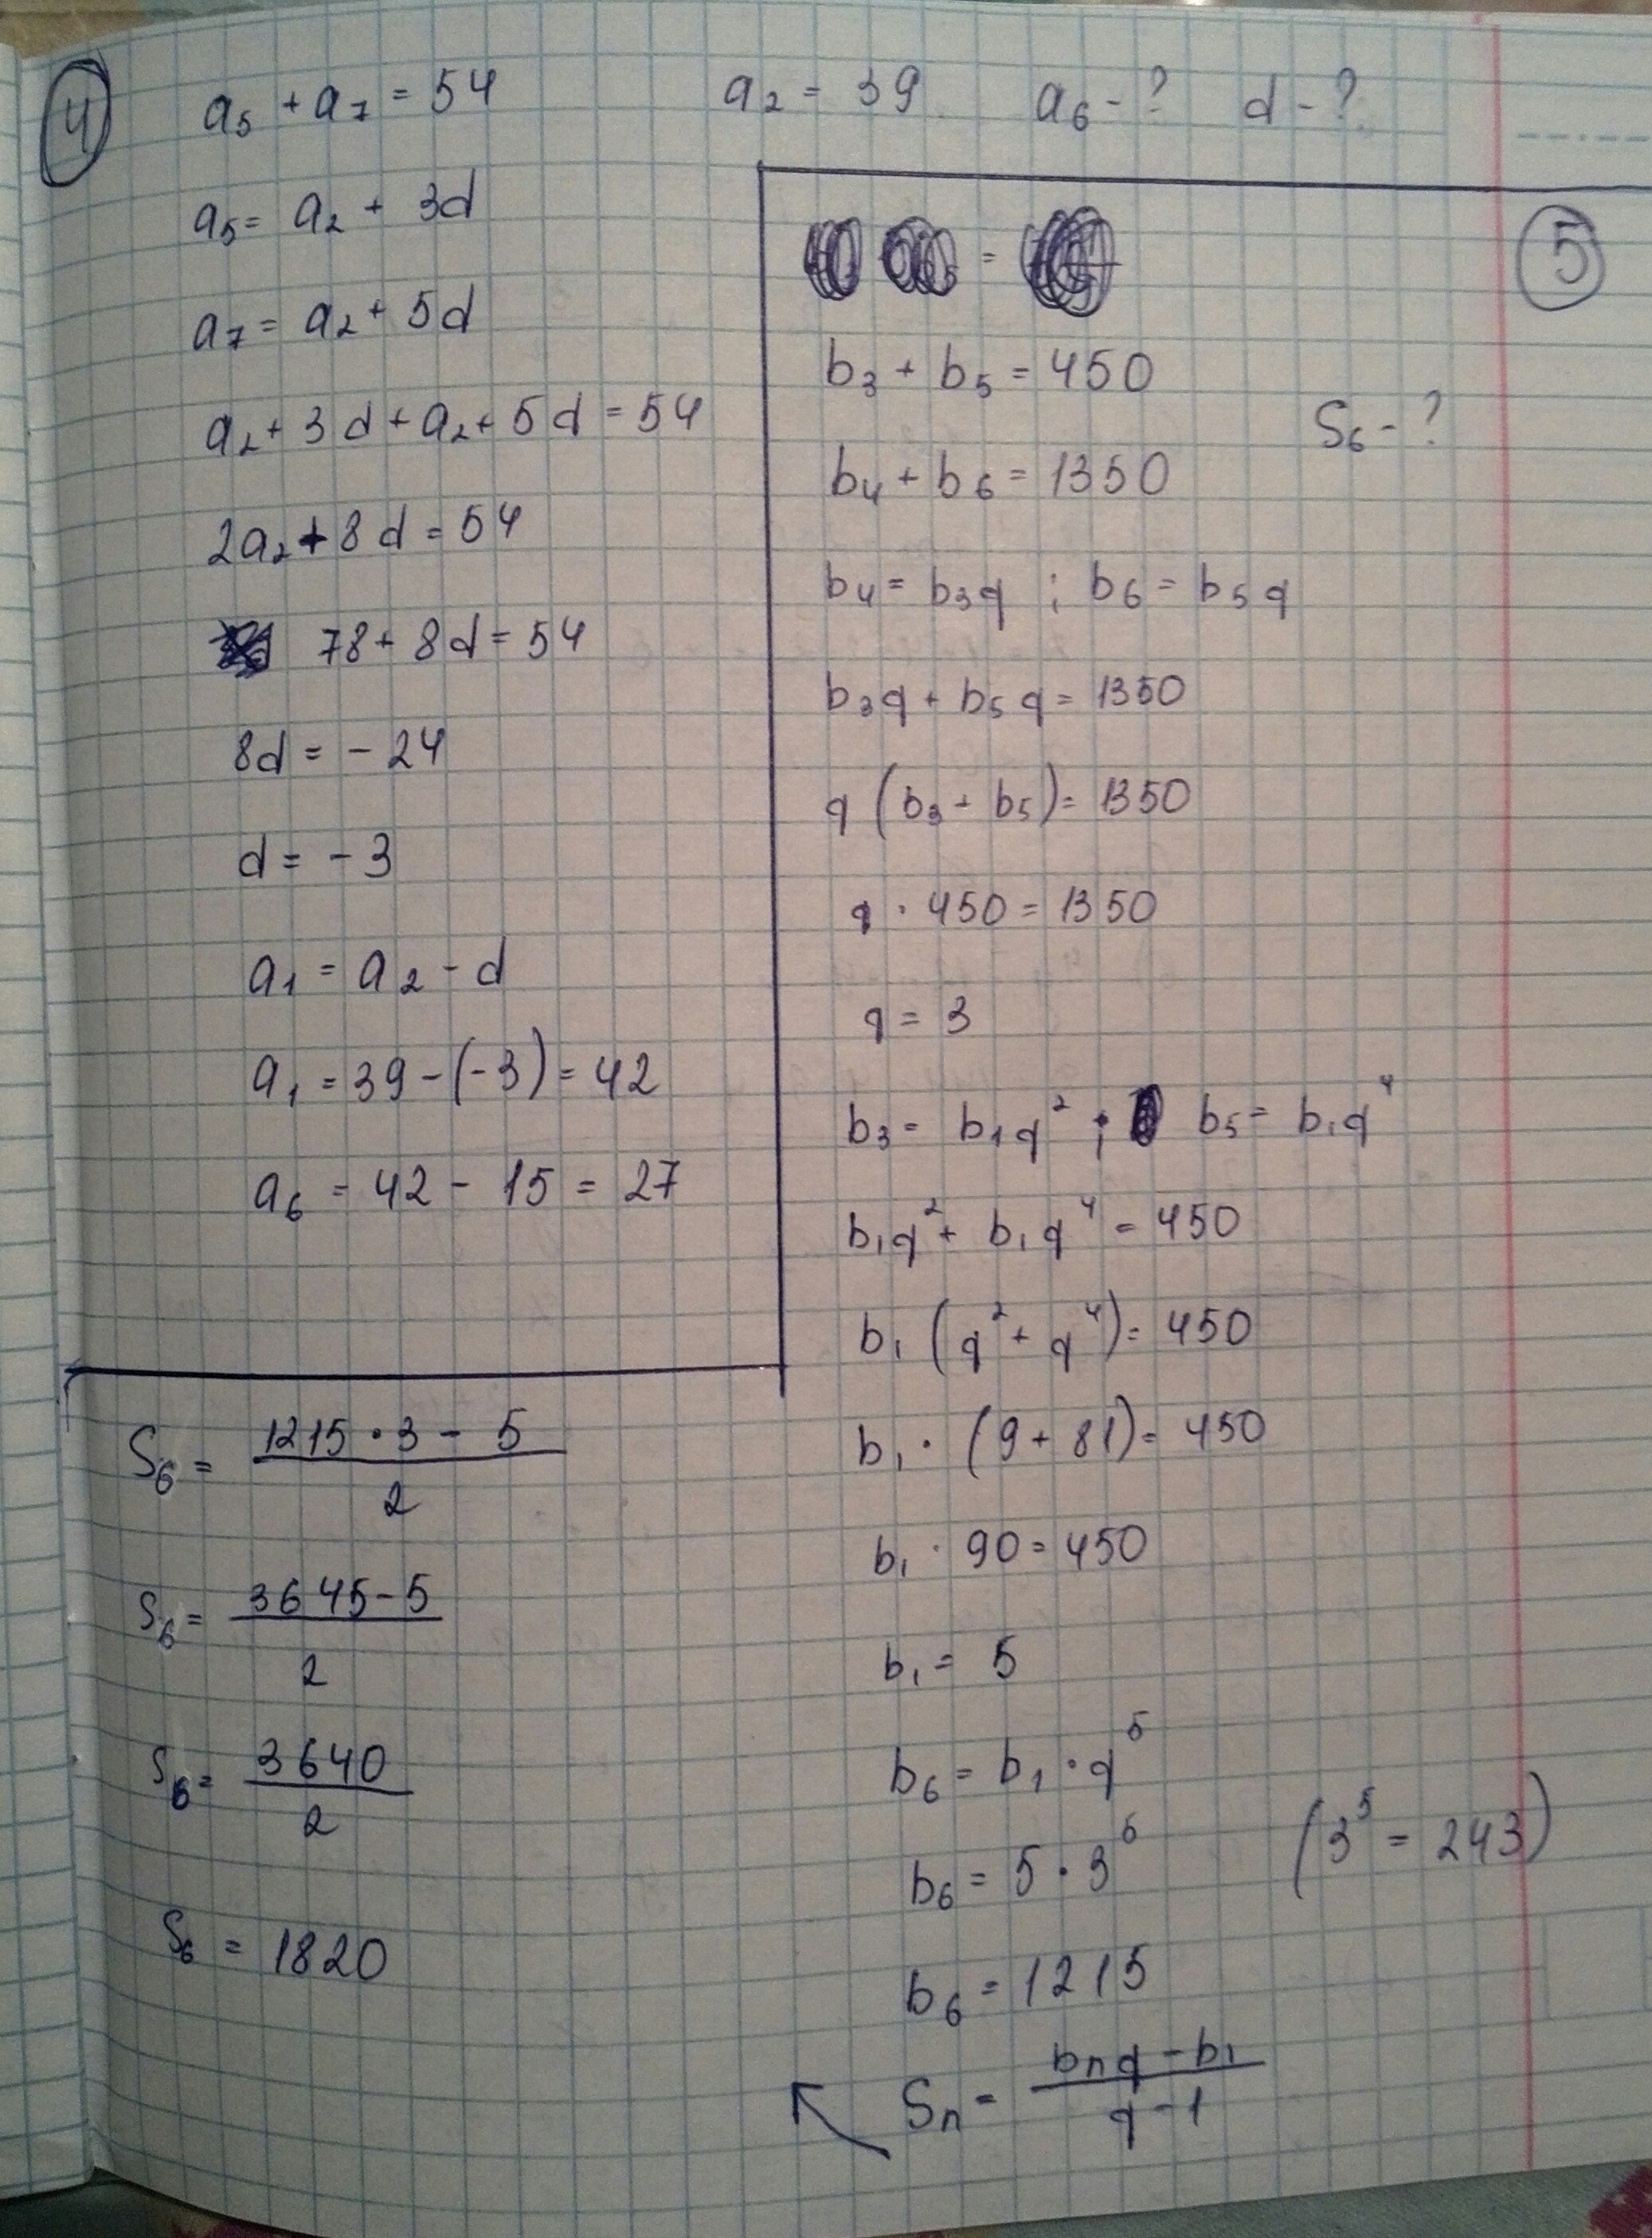 4
a₅ + a₇ = 54 a₂ = 39 a₆ - ? d - ?
a₅ = a₂ + 3d
a₇ = a₂ + 5d
a₂ + 3d + a₂ + 5d = 54
2a₂ + 8d = 54
78 + 8d = 54
8d = - 24
d = - 3
a₁ = a₂ - d
a₁ = 39 - (-3) = 42
a₆ = 42 - 15 = 27
5
b₃ + b₅ = 450
S₆ - ?
b₄ + b₆ = 1350
b₄ = b₃q ; b₆ = b₅q
b₃q + b₅q = 1350
q (b₃ + b₅) = 1350
q · 450 = 1350
q = 3
b₃ = b₁q² ; b₅ = b₁q⁴
b₁q² + b₁q⁴ = 450
b₁ (q² + q⁴) = 450
b₁ · (9 + 81) = 450
b₁ · 90 = 450
b₁ = 5
b₆ = b₁ · q⁵
b₆ = 5 · 3⁵ (3⁵ = 243)
b₆ = 1215
Sₙ = (bₙq - b₁) / (q - 1)
S₆ = (1215 · 3 - 5) / 2
S₆ = (3645 - 5) / 2
S₆ = 3640 / 2
S₆ = 1820